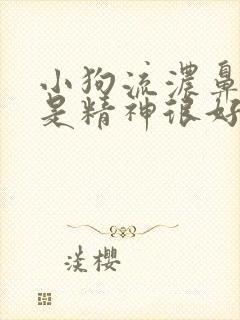 小狗流濃鼻
是精神很好
淡櫻